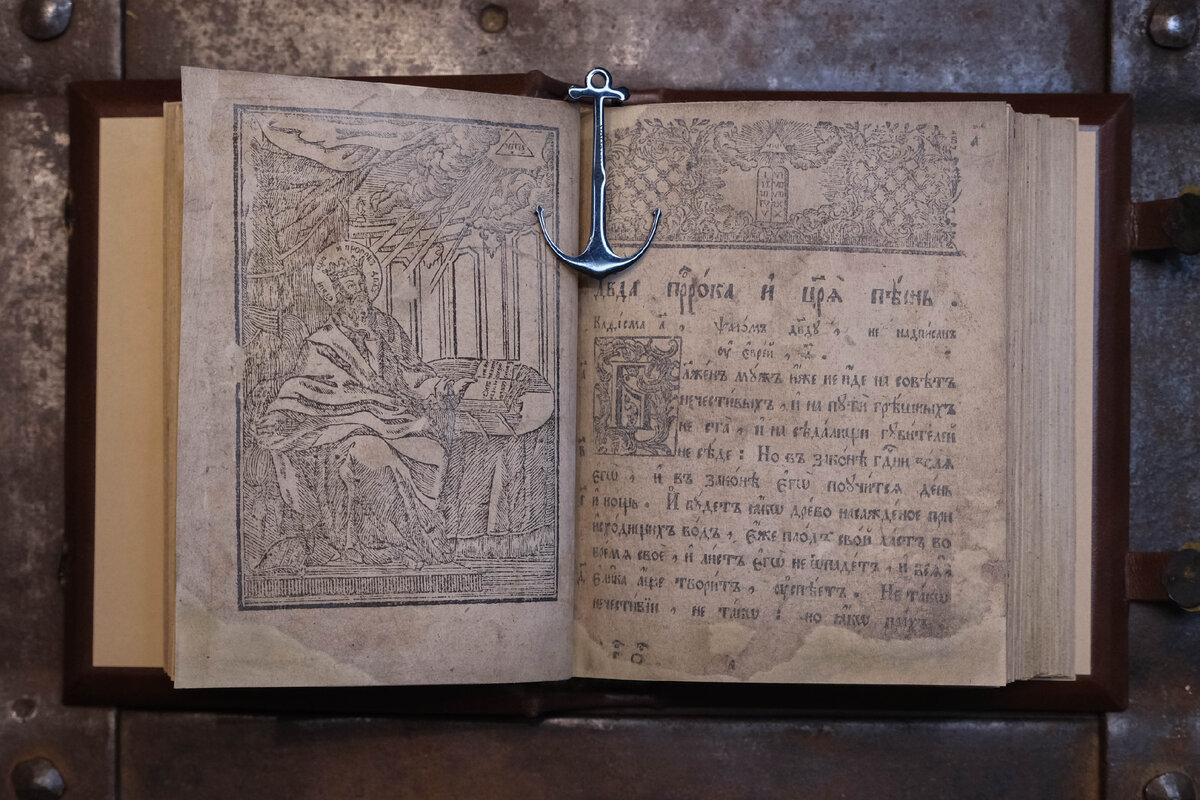 Двда прро́ка и҆ цр҃ѧ пѣ́снь .
Каѳі́сма а҃ , Ѱало́мъ дв҃ду , не надписанъ
ᲂу҆ є҆врей , а҃ .
Блаже́нъ мꙋжъ и҆́же не и҆́де на совѣ́тъ
нечести́выхъ , и҆ на пꙋти̑ грѣ́шныхъ
не ста̀ , и҆ на сѣда́лищи гꙋби́телей
не сѣ́де : Но въ зако́нѣ гдⷭ҇ни во́лѧ
є҆гѡ̀ , и҆ въ зако́нѣ є҆гѡ̀ поꙋчи́тсѧ де́нь
и҆ но́щь . И҆ бꙋ́детъ ꙗ҆́кѡ дре́во насажде́ное при
исхо́дищихъ во́дъ , є҆́же пло́дъ сво́й да́стъ во
вре́мѧ своѐ , и҆ ли́стъ є҆гѡ̀ не ѿпаде́тъ , и҆ всѧ̑
є҆ли́ка а҆́ще твори́тъ , ᲂу҆спѣ́етъ . Не та́кѡ
нечести́вїи , не та́кѡ : но ꙗ҆́кѡ пра́хъ